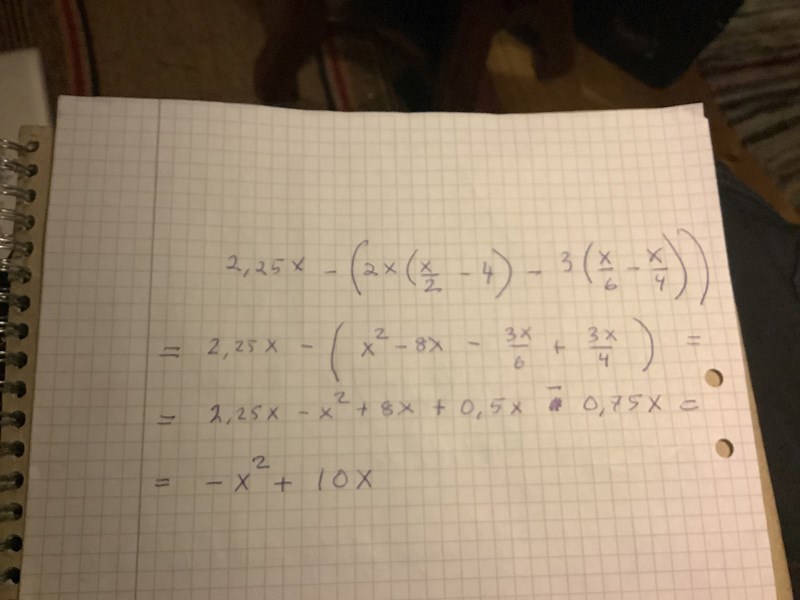 2,25x - (2x(x/2 - 4) - 3(x/6 - x/4))
= 2,25x - (x² - 8x - 3x/6 + 3x/4) =
= 2,25x - x² + 8x + 0,5x - 0,75x =
= -x² + 10x